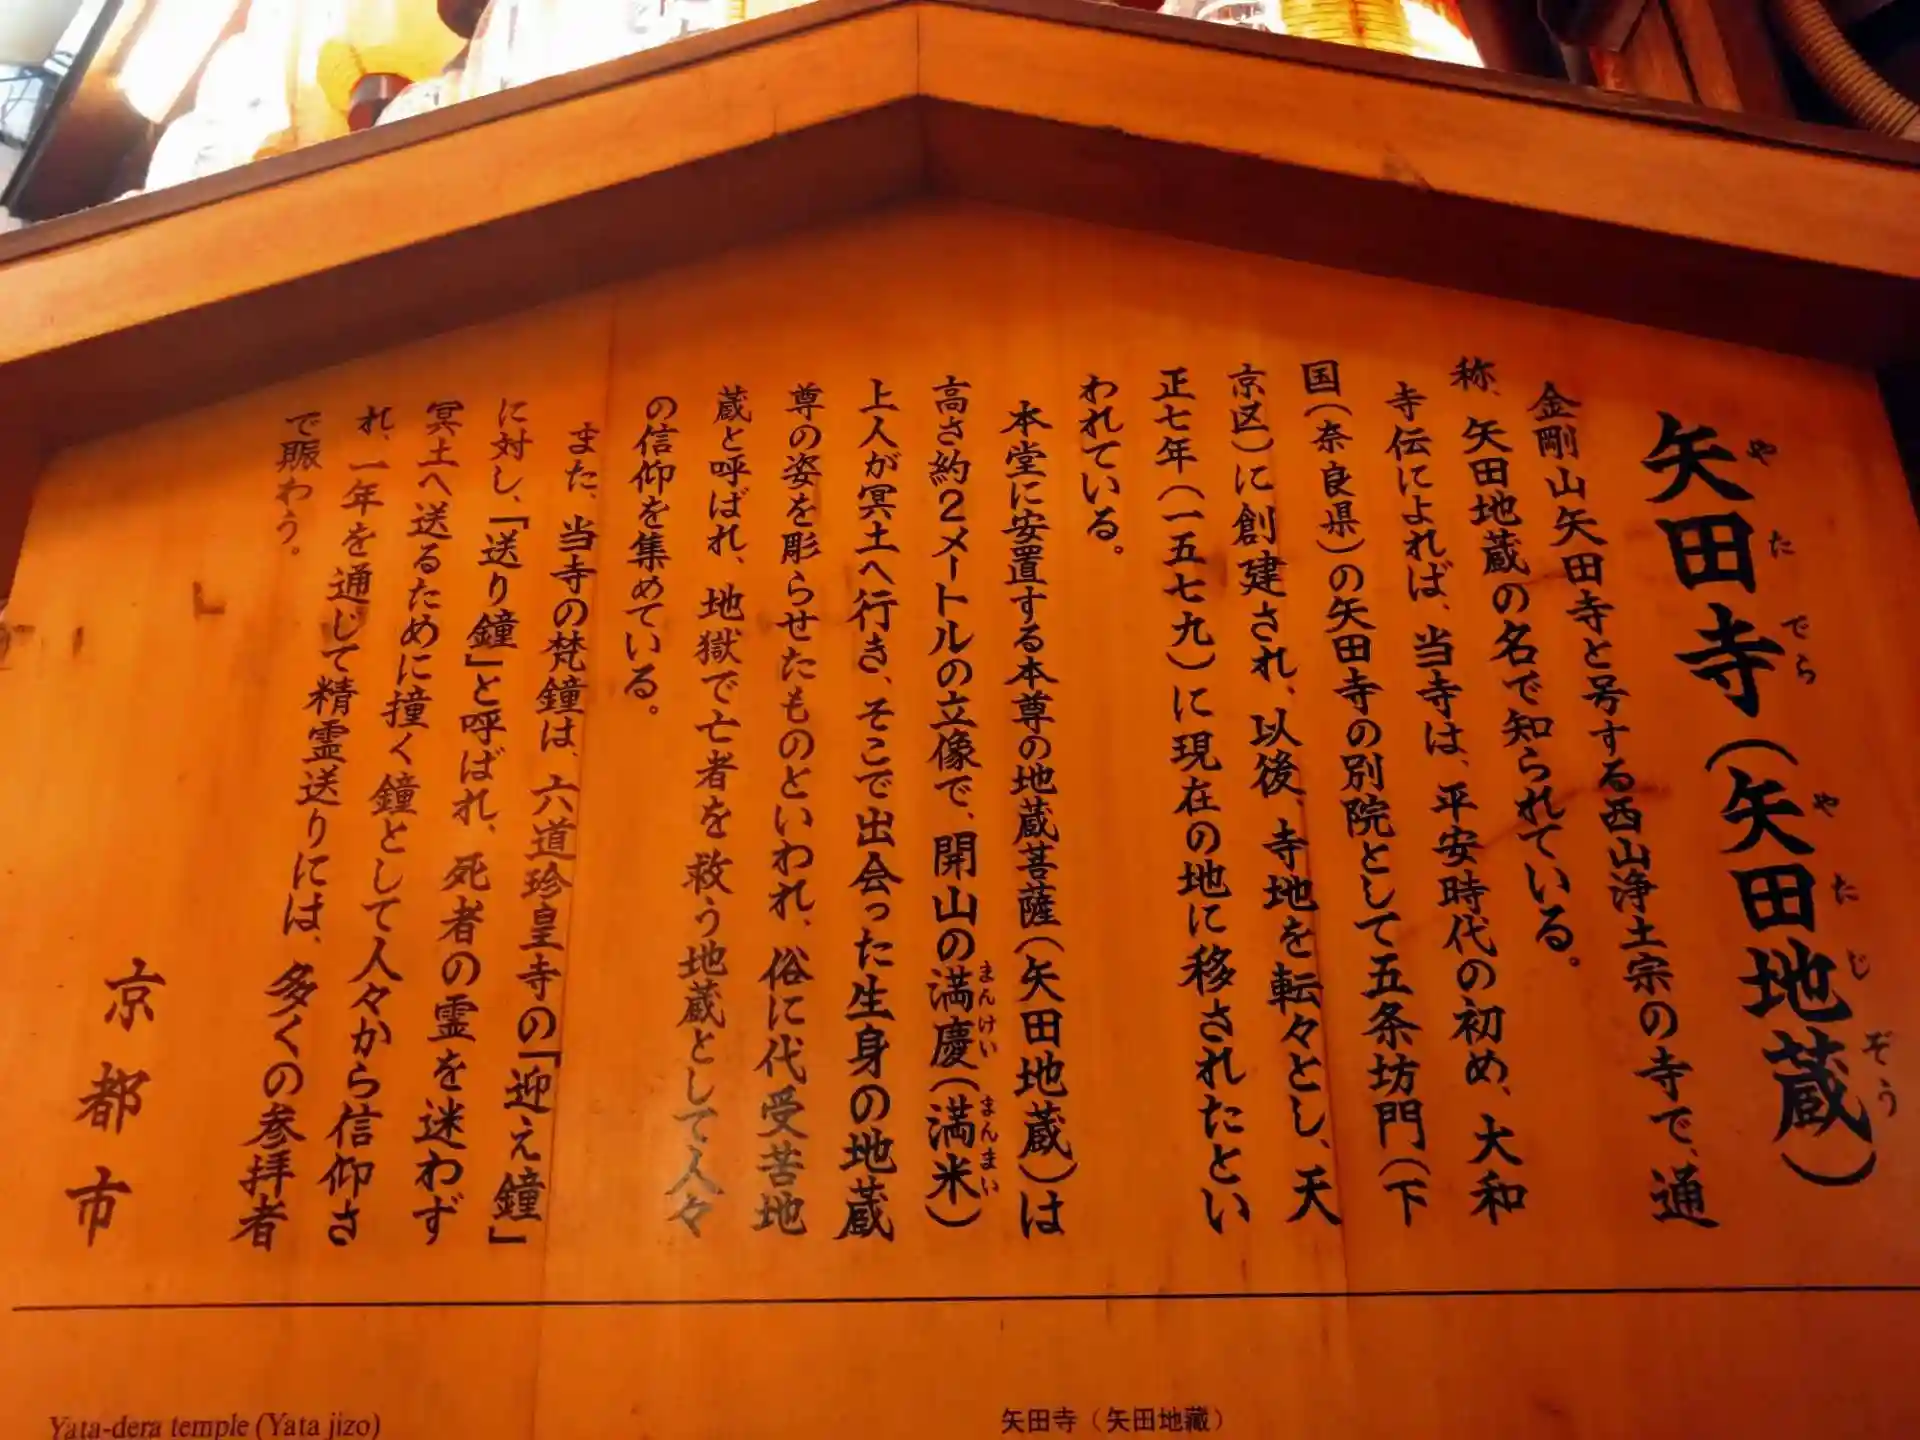 矢田寺（矢田地蔵）
金剛山矢田寺と号する西山浄土宗の寺で、通
称、矢田地蔵の名で知られている。
寺伝によれば、当寺は、平安時代の初め、大和
国（奈良県）の矢田寺の別院として五条坊門（下
京区）に創建され、以後、寺地を転々とし、天
正七年（一五七九）に現在の地に移されたとい
われている。
本堂に安置する本尊の地蔵菩薩（矢田地蔵）は
高さ約２メートルの立像で、開山の満慶（満米）
上人が冥土へ行き、そこで出会った生身の地蔵
尊の姿を彫らせたものといわれ、俗に代受苦地
蔵と呼ばれ、地獄で亡者を救う地蔵として人々
の信仰を集めている。
また、当寺の梵鐘は、六道珍皇寺の「迎え鐘」
に対し、「送り鐘」と呼ばれ、死者の霊を迷わず
冥土へ送るために撞く鐘として人々から信仰さ
れ、一年を通じて精霊送りには、多くの参拝者
で賑わう。
京都市
Yata-dera temple (Yata jizo)
矢田寺（矢田地藏）